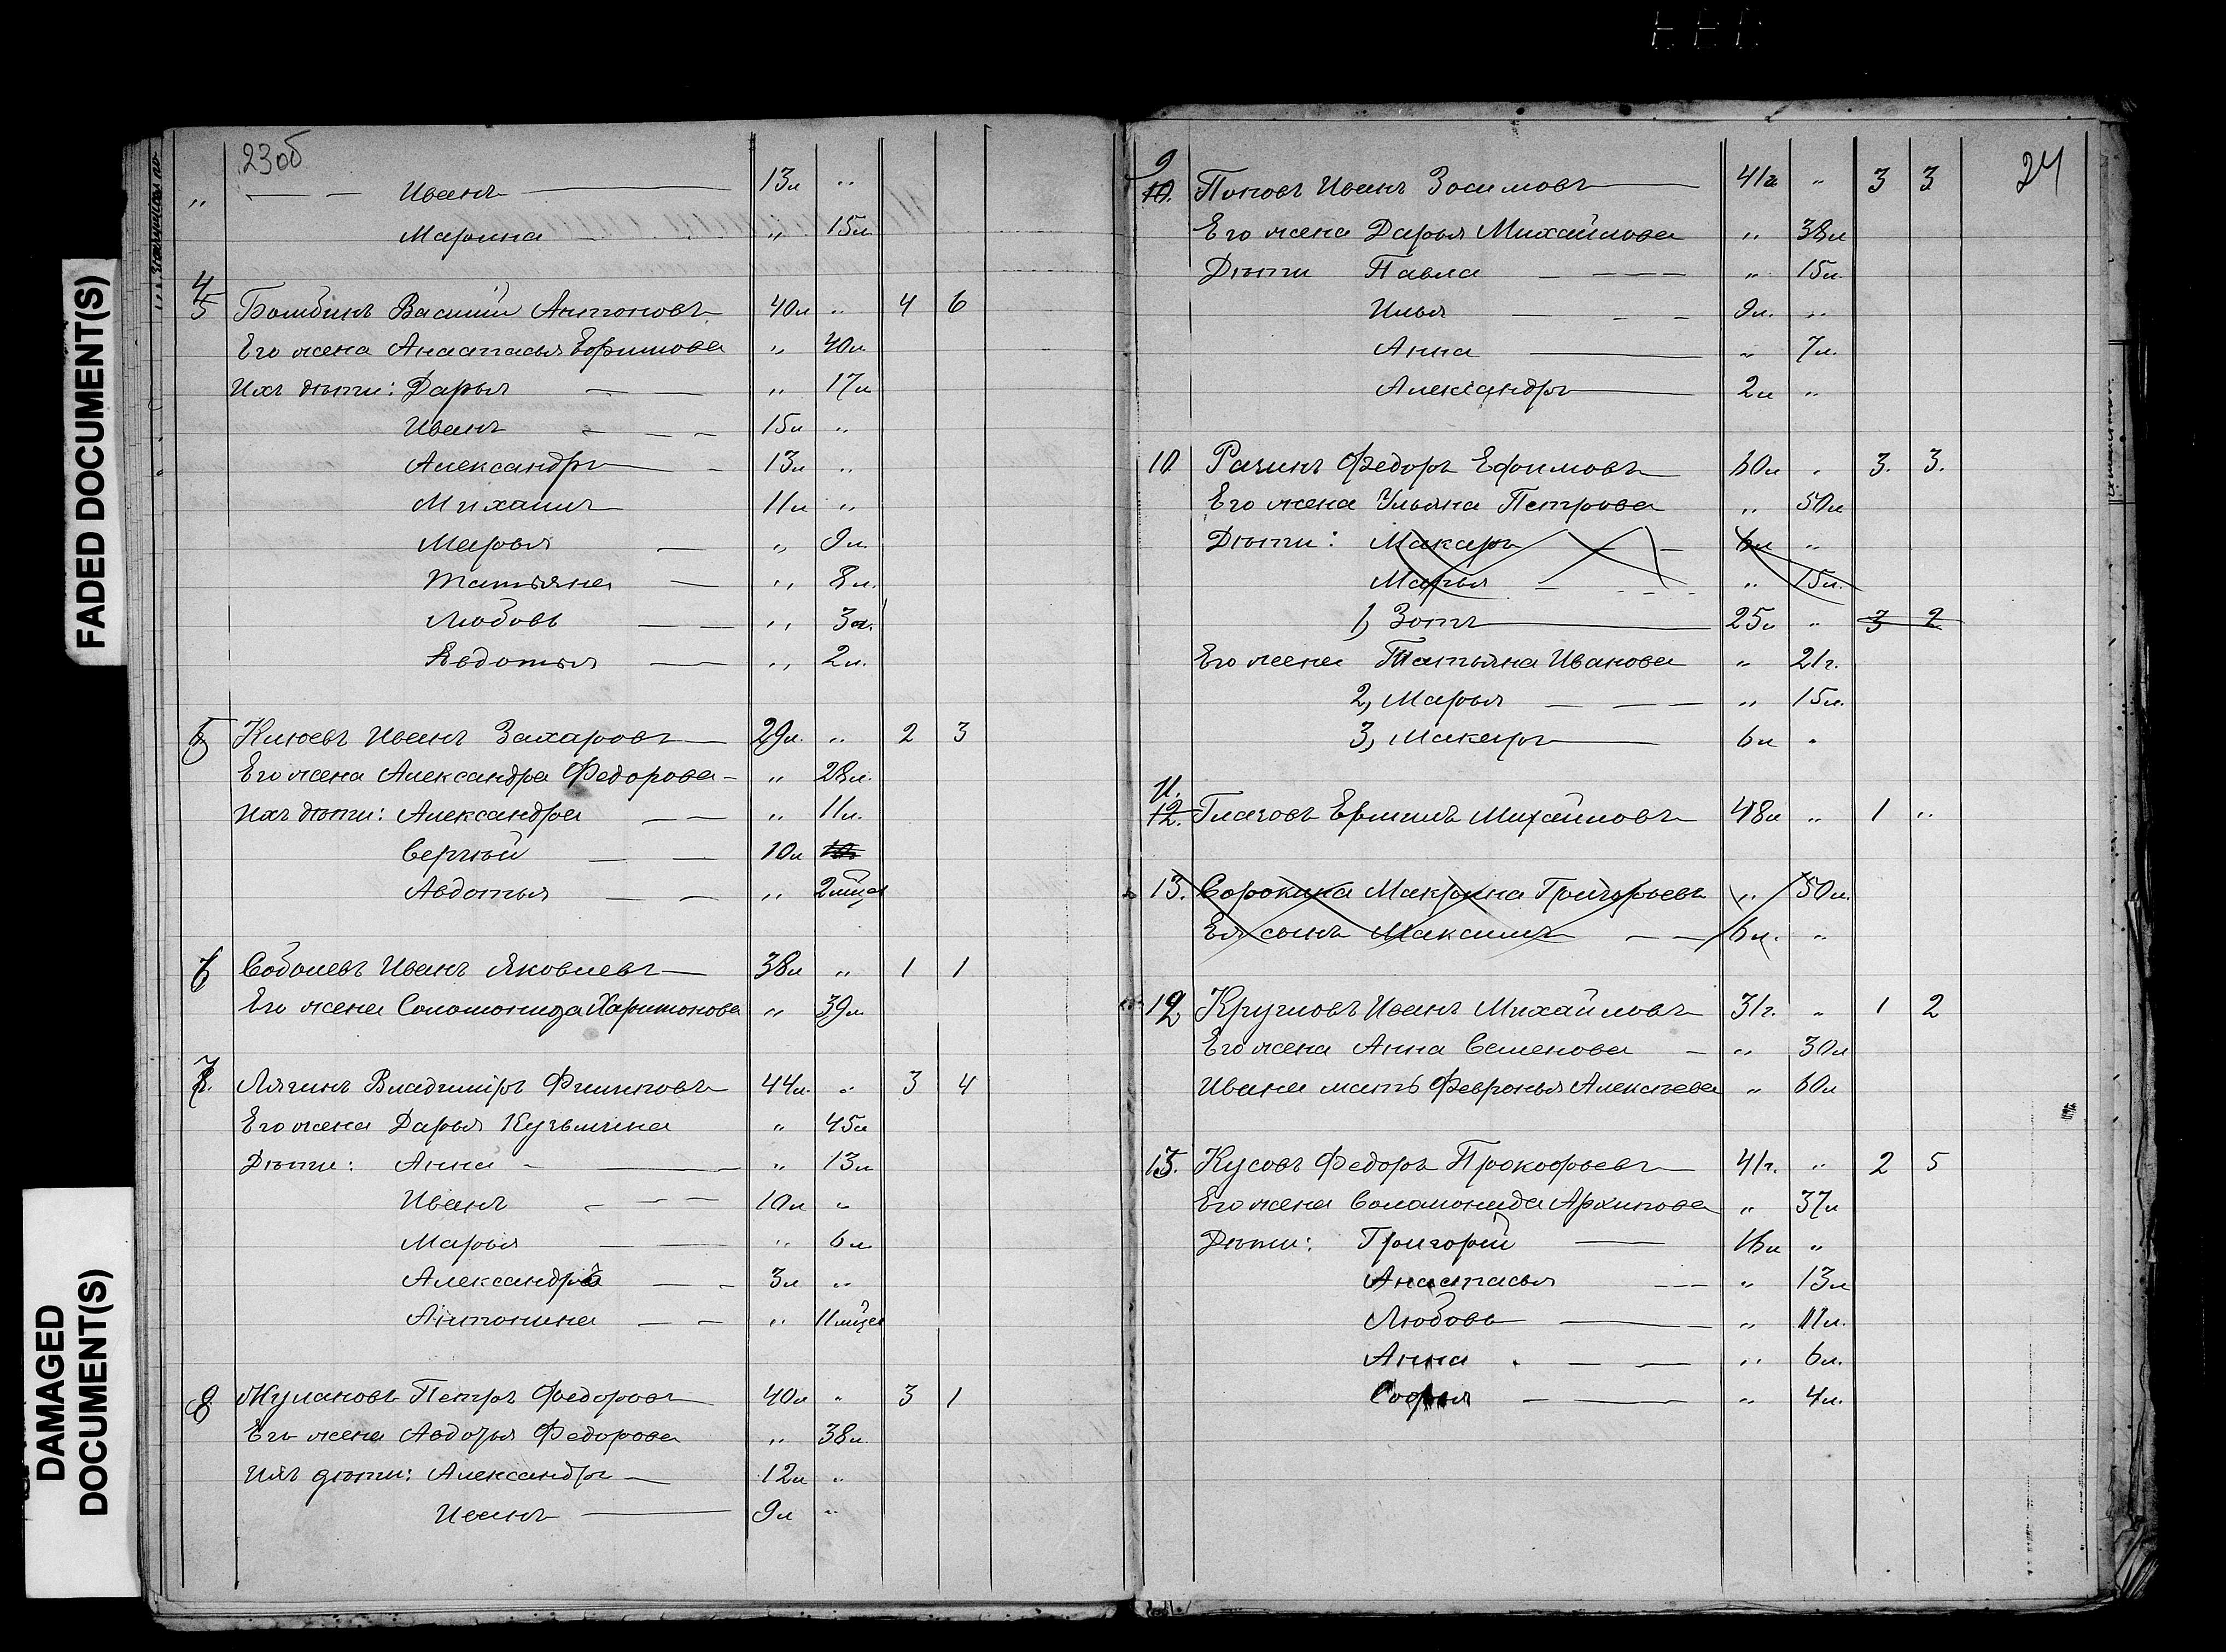 FADED DOCUMENT(S)
DAMAGED
DOCUMENT(S)
23об
" — — Иванъ — 13л "
Марина " 15л
4
5 Бомбинъ Василій Антоновъ 40л " 4 6
Его жена Анастасья Ефимова " 40л
Ихъ дѣти: Дарья — — " 17л
Иванъ — — — 15л "
Александръ — 13л "
Михаилъ 11л "
Марья — " 9л.
Татьяна — " 8л.
Любовь — — " 3л.
Авдотья — " 2л.
5 Клюевъ Иванъ Захаровъ — 29л. " 2 3
Его жена Александра Федорова — " 28л.
Ихъ дѣти: Александра — — " 11л.
Сергѣй — — 10л
Авдотья — — " 2 мѣся
6 Соболевъ Иванъ Яковлевъ — 38л " 1 1
Его жена Соломонида Харитонова " 39л
7 Лягинъ Владиміръ Филиповъ 44л. " 3 4
Его жена Дарья Кузьмина " 45л
Дѣти: Анна — — " 13л
Иванъ — — — 10л "
Марья — — " 6л
Александръ — — 3л "
Антонина — — " 11 мѣся
8 Жулановъ Петръ Федоровъ 40л " 3 1
Его жена Авдотья Федорова " 38л.
Ихъ дѣти: Александръ — 12л "
Иванъ — 9л "
24
9
10. Поповъ Иванъ Зосимовъ — 41г " 3 3
Его жена Дарья Михайлова " 38л
Дѣти Павла — — — — " 15л.
Илья — — — 9л. "
Анна — " 7л.
Александръ — 2л "
10 Рачинъ Федоръ Ефимовъ 60л " 3. 3.
Его жена Ульяна Петрова " 50л
Дѣти: Макаръ — — 6л "
Марья — " 15л.
1, Зотъ — 25л " 3 2
Его жена Татьяна Иванова " 21г.
2, Марья — — — " 15л.
3, Макаръ — 6л "
11.
12. Глаговъ Ермилъ Михайловъ — 48л " 1 "
13. Сорокина Макрина Григорьева " 50л.
Ея сынъ Максимъ — — 6л. "
12 Кругловъ Иванъ Михайловъ — 31г. " 1 2
Его жена Анна Семенова — " 30л
Ивана мать Февронья Алексѣева " 60л
13. Кусовъ Федоръ Прокофьевъ — 41г. " 2 5
Его жена Соломонида Архипова " 37л
Дѣти: Григорій — 16л "
Анастасья — — " 13л
Любовь — — " 11л.
Анна — — " 6л.
Софья — — " 4л.